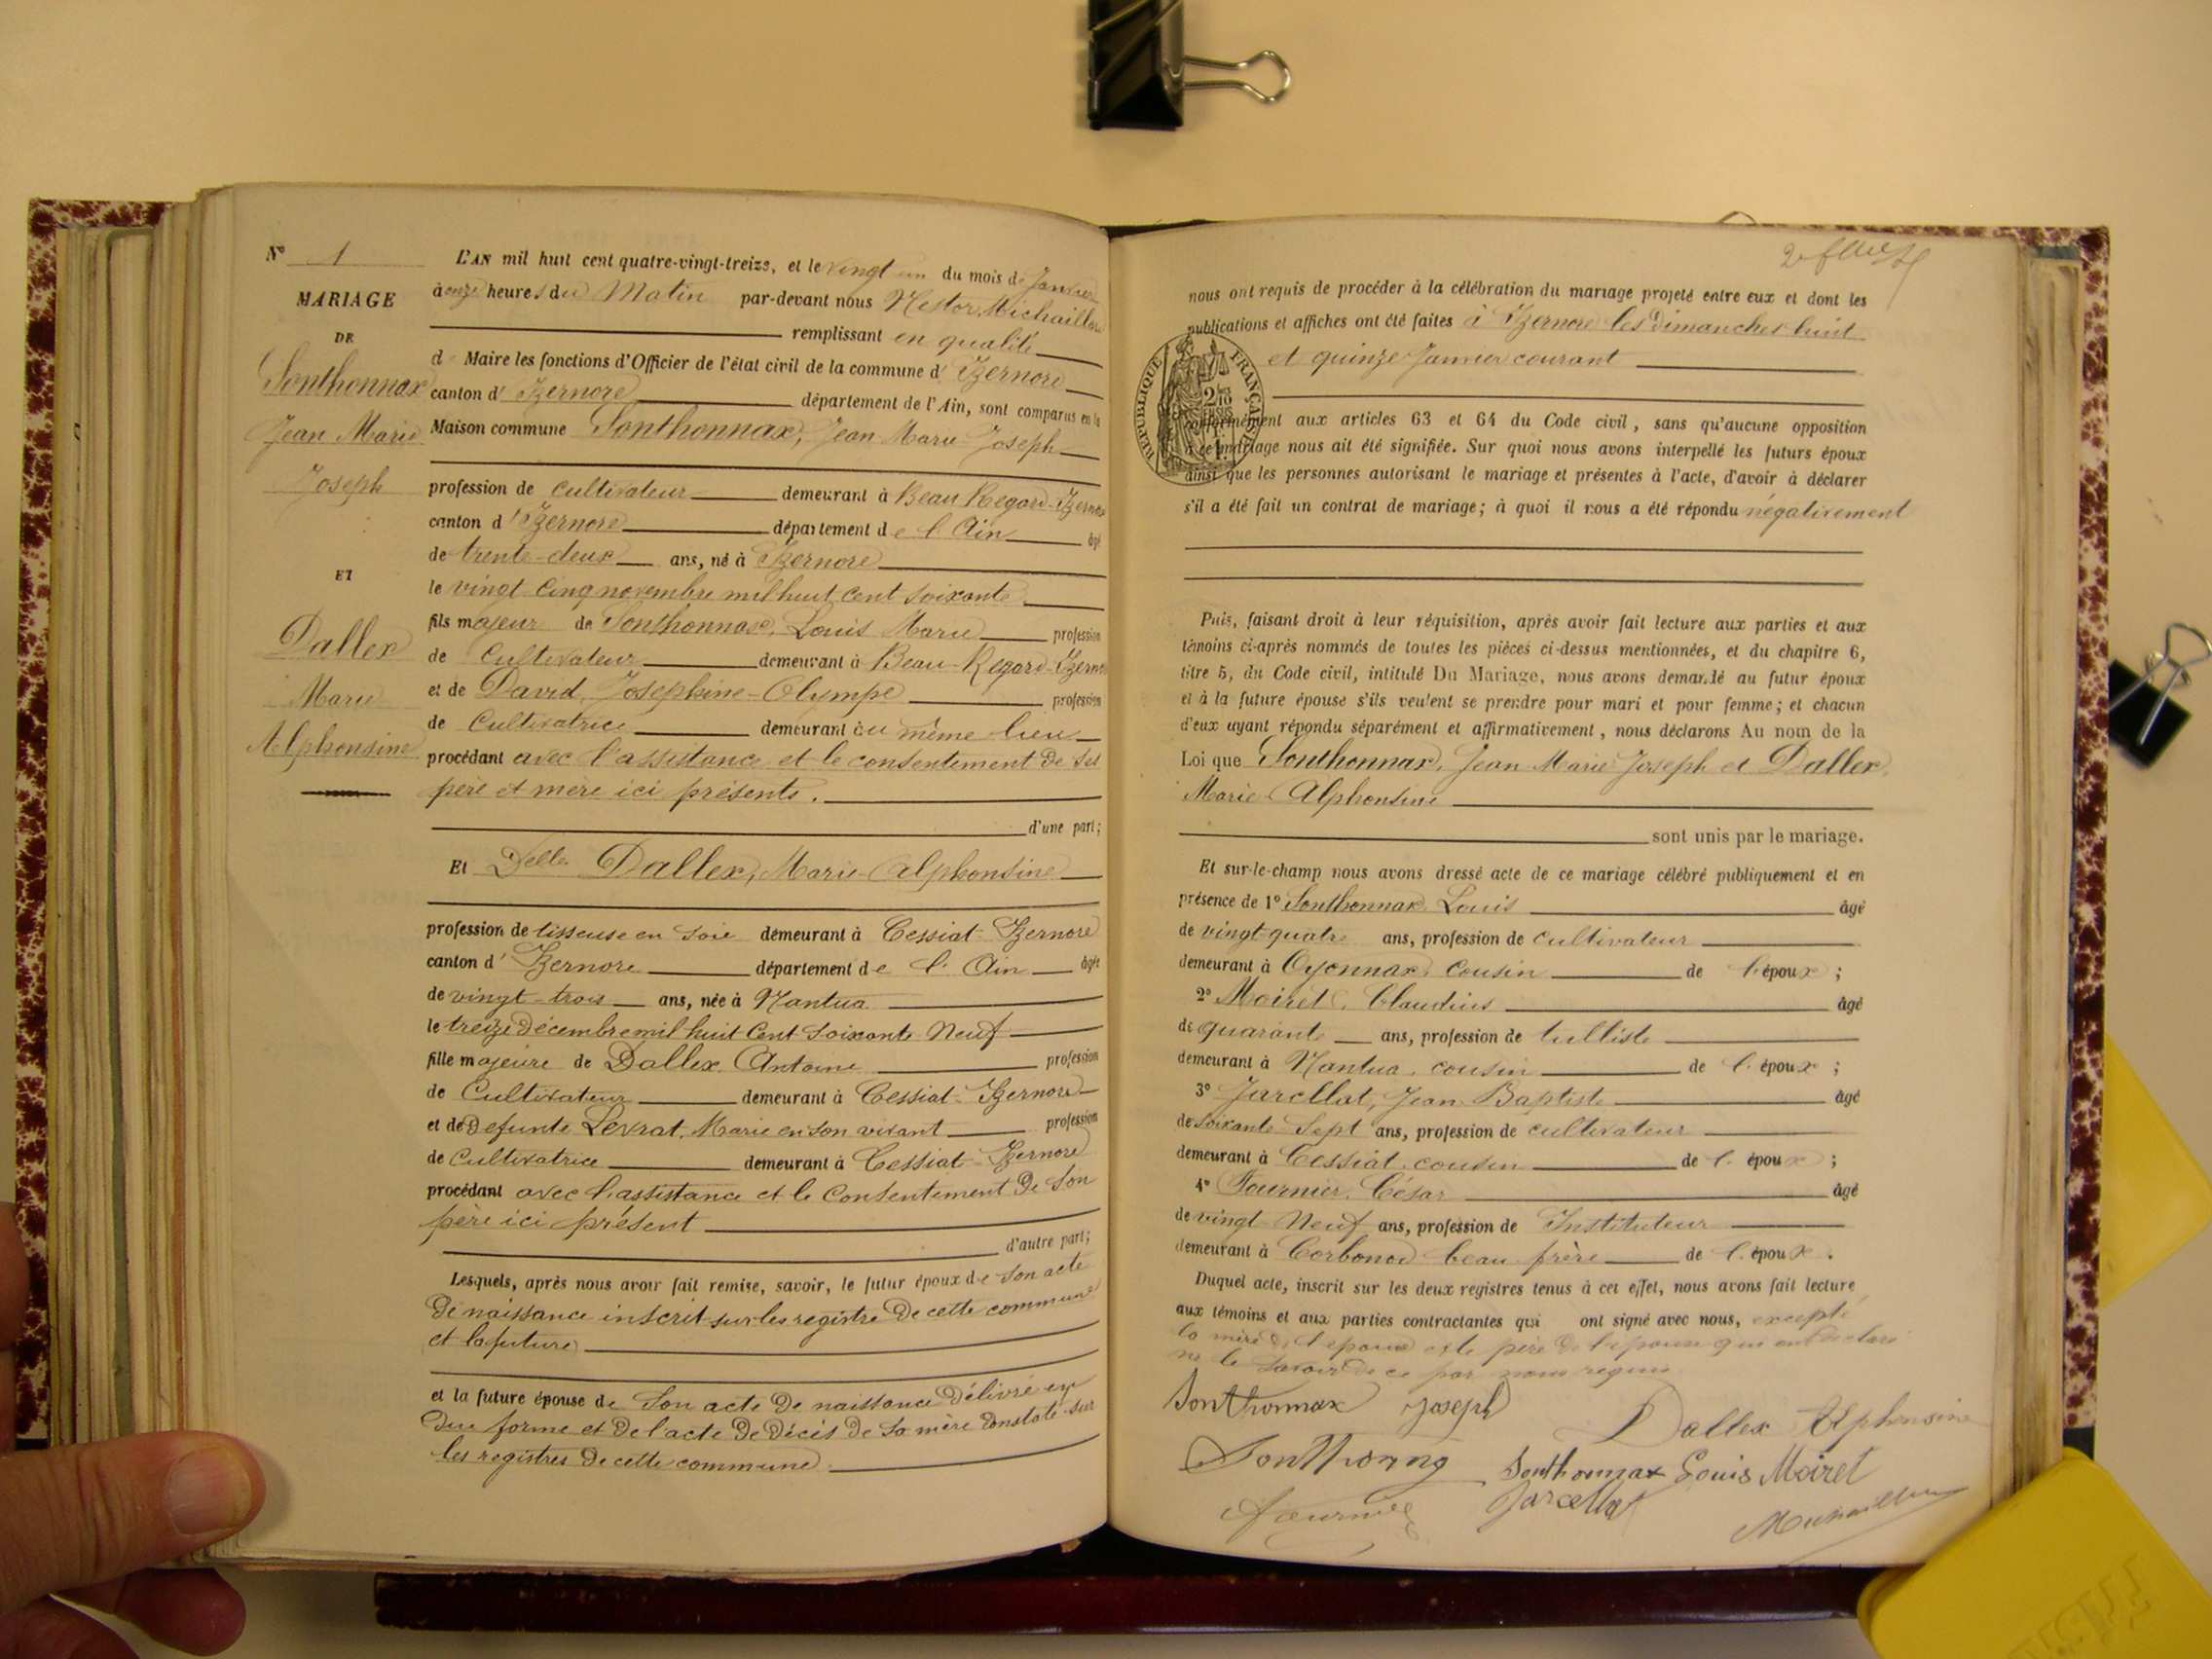 N° 1
MARIAGE
DE
Sonthonnax
Jean Marie
Joseph
ET
Dallex
Marie
Alphonsine
L'AN mil huit cent quatre-vingt-treize, et le vingt un du mois de Janvier
à onze heures du Matin par-devant nous Nestor Michaillard
remplissant en qualité
de Maire les fonctions d'Officier de l'état civil de la commune d'Izernore
canton d'Izernore département de l'Ain, sont comparus en la
Maison commune Sonthonnax, Jean Marie Joseph
profession de cultivateur demeurant à Beau Regard-Izernore
canton d'Izernore département de l'Ain âgé
de trente-deux ans, né à Izernore
le vingt cinq novembre mil huit cent soixante
fils majeur de Sonthonnax, Louis Marie profession
de Cultivateur demeurant à Beau-Regard-Izernore
et de David, Joséphine-Olympe profession
de Cultivatrice demeurant au même lieu
procédant avec l'assistance et le consentement de ses
père et mère ici présents.
d'une part;
Et Delle Dallex, Marie-Alphonsine
profession de tisseuse en soie demeurant à Cessiat-Izernore
canton d'Izernore département de l'Ain âgée
de vingt-trois ans, née à Nantua
le treize Décembre mil huit Cent Soixante Neuf
fille majeure de Dallex Antoine profession
de Cultivateur demeurant à Cessiat-Izernore
et de Défunte Levrat, Marie en son vivant profession
de Cultivatrice demeurant à Cessiat-Izernore
procédant avec l'assistance et le Consentement De Son
père ici présent
d'autre part;
Lesquels, après nous avoir fait remise, savoir, le futur époux de Son acte
De naissance inscrit sur les registre De cette commune
et la future
et la future épouse de Son acte De naissance Délivré en
Due forme et De l'acte De Décès De sa mère constaté sur
les registres De cette commune
nous ont requis de procéder à la célébration du mariage projeté entre eux et dont les
publications et affiches ont été faites à Izernore les Dimanches huit
et quinze Janvier courant
REPUBLIQUE FRANÇAISE
conformément aux articles 63 et 64 du Code civil, sans qu'aucune opposition
à ce mariage nous ait été signifiée. Sur quoi nous avons interpellé les futurs époux
ainsi que les personnes autorisant le mariage et présentes à l'acte, d'avoir à déclarer
s'il a été fait un contrat de mariage; à quoi il nous a été répondu négativement
Puis, faisant droit à leur réquisition, après avoir fait lecture aux parties et aux
témoins ci-après nommés de toutes les pièces ci-dessus mentionnées, et du chapitre 6,
titre 5, du Code civil, intitulé Du Mariage, nous avons demandé au futur époux
et à la future épouse s'ils veulent se prendre pour mari et pour femme; et chacun
d'eux ayant répondu séparément et affirmativement, nous déclarons Au nom de la
Loi que Sonthonnax, Jean Marie Joseph et Dallex,
Marie Alphonsine
sont unis par le mariage.
Et sur-le-champ nous avons dressé acte de ce mariage célébré publiquement et en
présence de 1° Sonthonnax Louis âgé
de vingt quatre ans, profession de cultivateur
demeurant à Oyonnax, cousin de l'époux;
2° Moiret, Claudius âgé
de quarante ans, profession de tulliste
demeurant à Nantua, cousin de l'époux;
3° Jarcellat, Jean Baptiste âgé
de soixante Sept ans, profession de cultivateur
demeurant à Cessiat, cousin de l'époux;
4° Fournier, César âgé
de vingt Neuf ans, profession de Instituteur
demeurant à Corbonod beau frère de l'époux.
Duquel acte, inscrit sur les deux registres tenus à cet effet, nous avons fait lecture
aux témoins et aux parties contractantes qui ont signé avec nous, excepté
la mère de l'époux et le père de l'épouse qui ont déclaré
ne le savoir de ce par nous requis
Sonthonnax Joseph
Dallex Alphonsine
Sonthonnax Louis Moiret
Jarcellat
Fournier
Michaillard